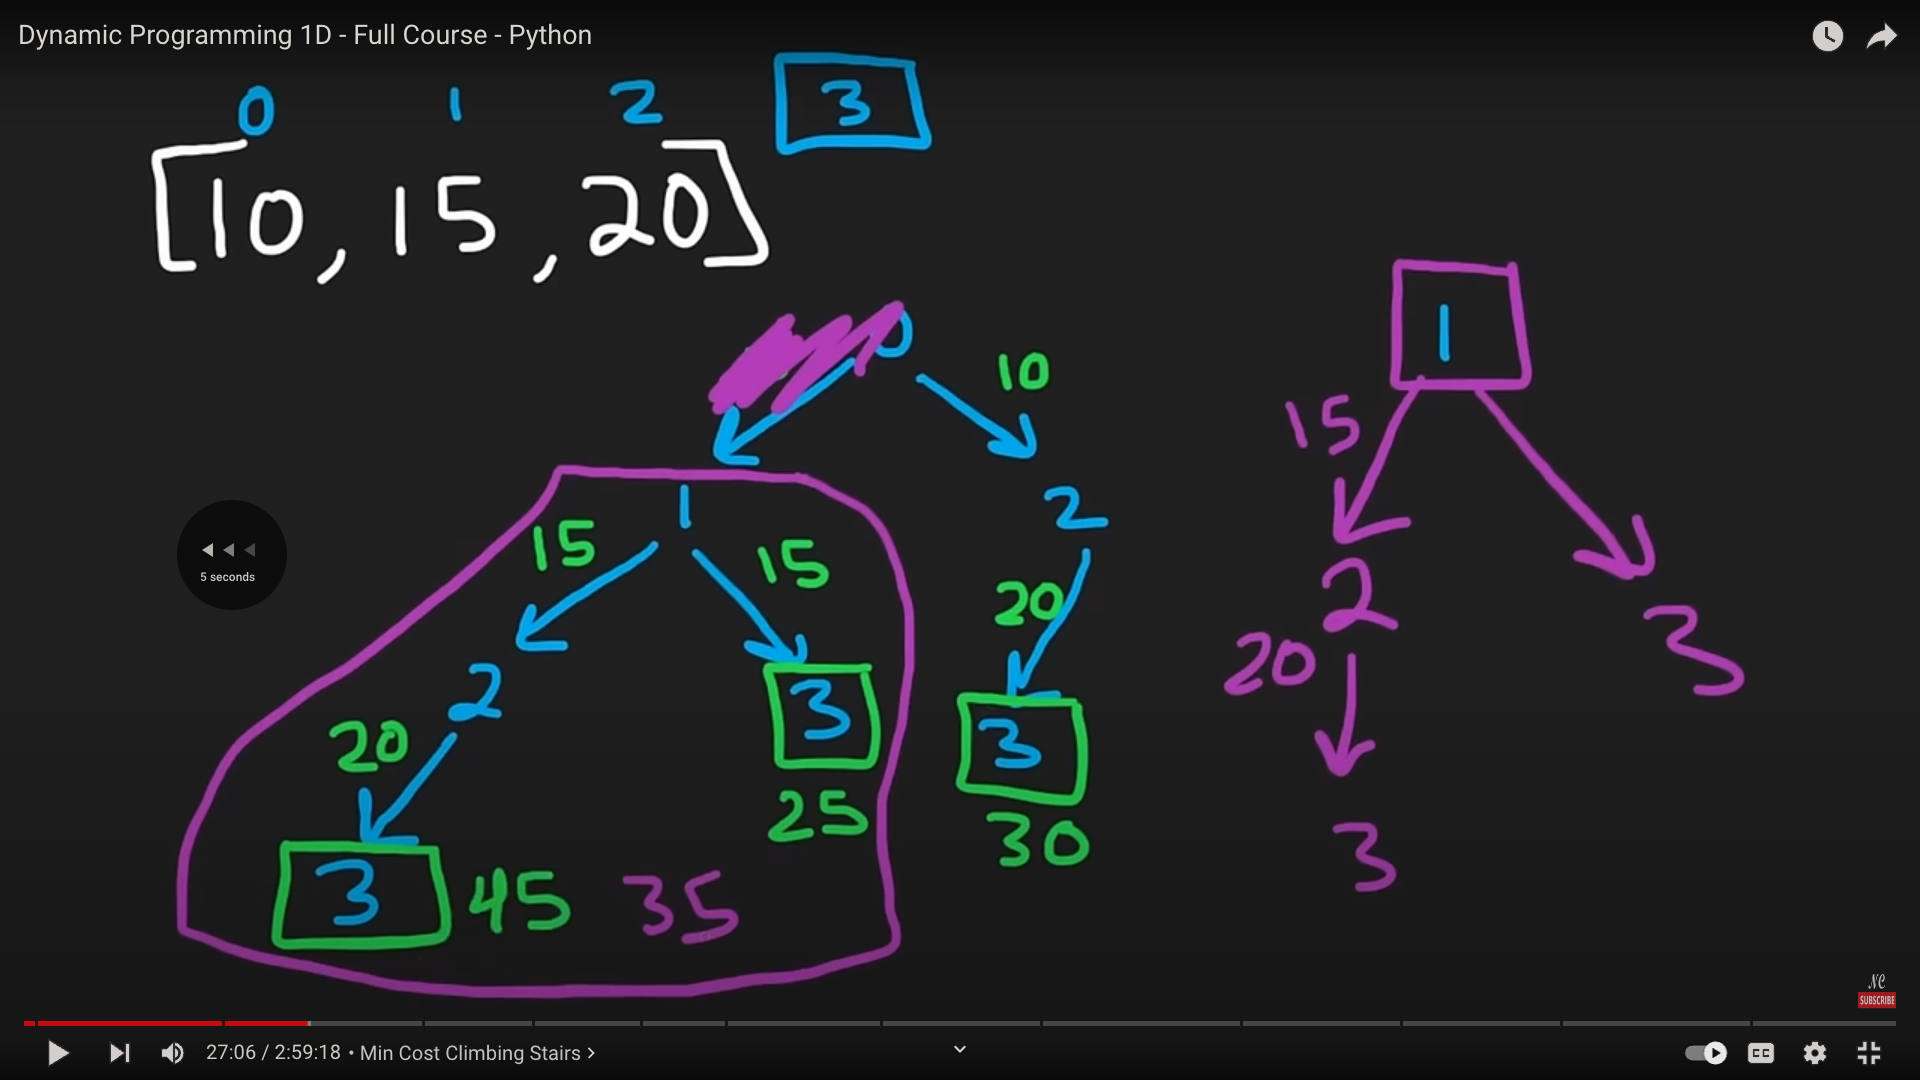 Dynamic Programming 1D - Full Course - Python
0 1 2 3
[10, 15, 20]
0
10
1
15
1
15
15
2
2
20
3
20
2
20
3
3
3
25
30
3
45
35
3
5 seconds
NC
SUBSCRIBE
27:06 / 2:59:18 • Min Cost Climbing Stairs
CC